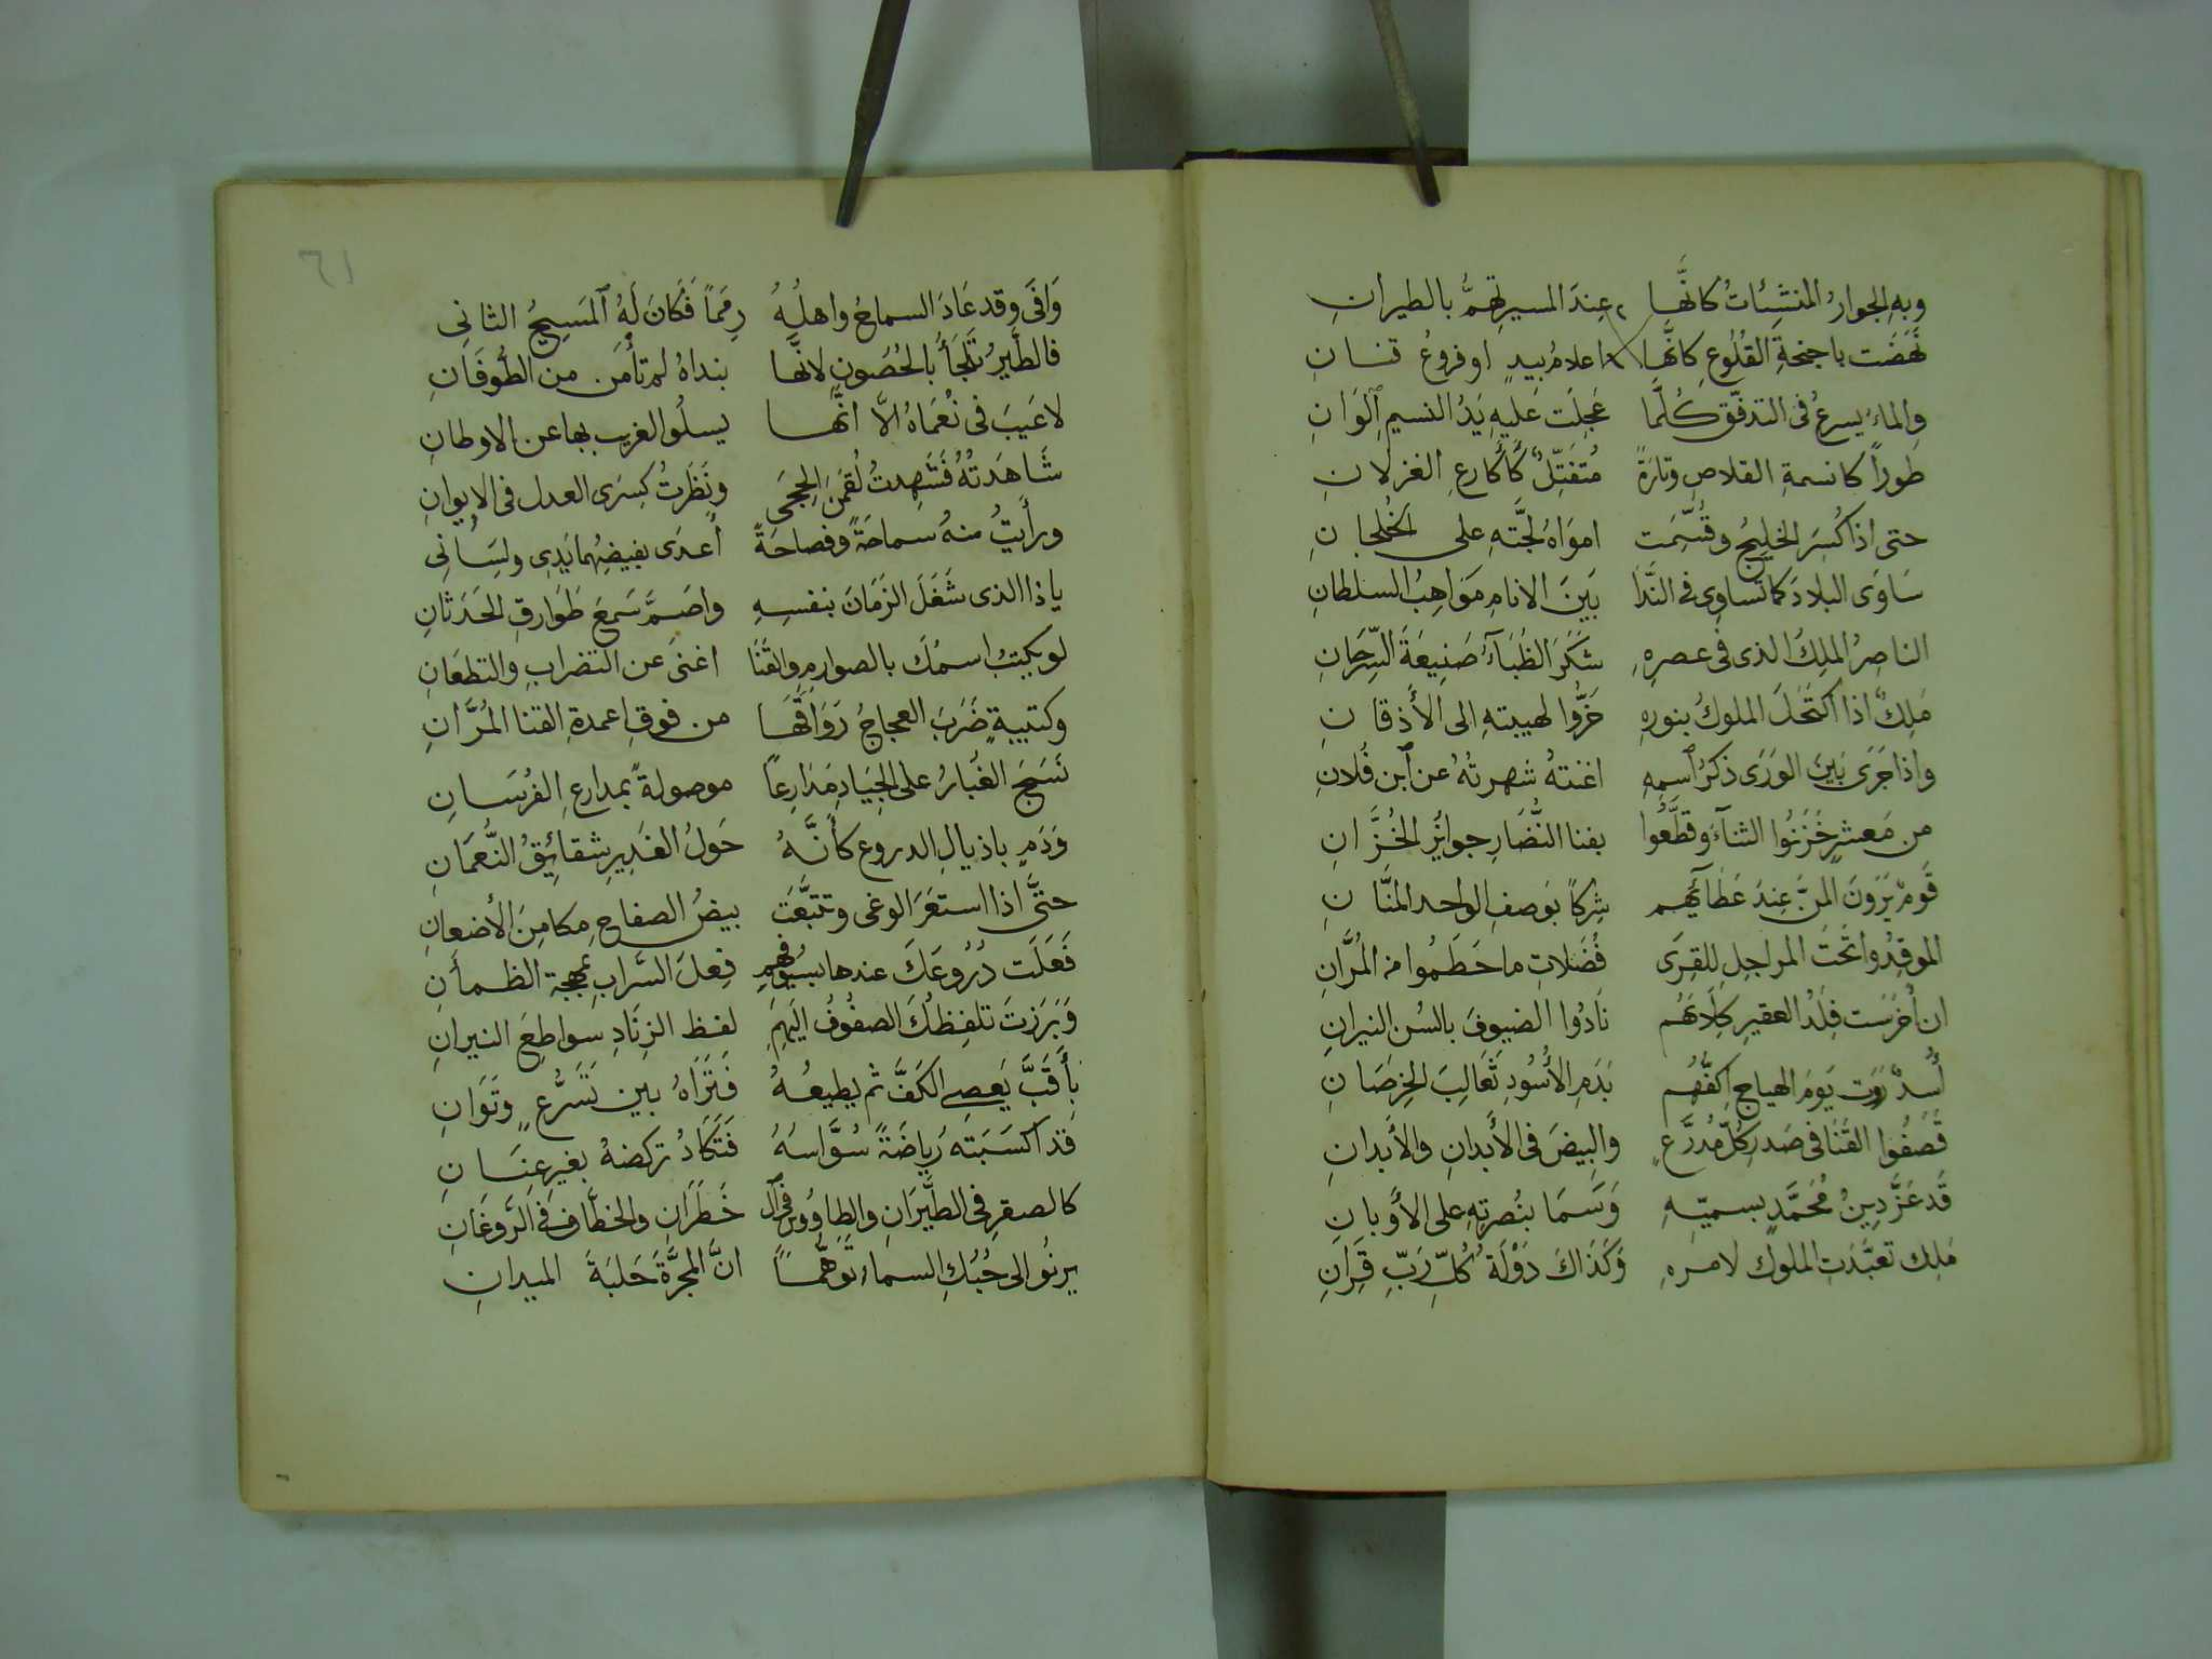 وبهِ الجوارُ المنشِئاتُ كانَّها عِندَ المسيرِ تهمُّ بالطيرانِ
نَهَضَت باجنحةِ القُلُوعِ كانَّها اعلامُ بيدٍ او فروعُ قنانِ
والماءُ يسرعُ فى التدفّقِ كُلَّما عَجِلَت عَليهِ يَدُ النسيم الوَانِ
طوراً كانسمةِ القلاصِ وتارَةً مُتفَتِّلٌ كأكارعِ الغزلانِ
حتى اذا كُسَر الخليجُ وقُسِّمَت امواهُ لجَّتهِ على الخُلجانِ
سَاوَى البلادَ كما تَساوِى فى النَّدَا بَينَ الانامِ مَوَاهِبُ السلطانِ
الناصِرُ المَلِكُ الذى فى عصرهِ شَكَرَ الظُبَآءُ صَنِيعَةَ السِّرحَانِ
مَلِكٌ اذا اكتَحَلَ الملوكُ بنورهِ خَرُّوا لهيبتهِ الى الأذقانِ
واذا جَرَى بَينَ الوَرَى ذِكرُ اسمِهِ اغنتهُ شهرتُهُ عن اَبن فُلانِ
من مَعشرٍ خَزَنُوا الثنآءَ وقطَّعُوا بفنا النُّضَارِ جوايزُ الخُزَّانِ
قَومٌ يَرَونَ المَنَّ عِندَ عَطآئهِم شِركاً بوَصفِ الواحدِ المنَّانِ
الموقِدُوا تحَتَ المراجلِ للقِرَى فُضَلاتِ ما حَطَمُوا من المُرَّانِ
ان أخرَسَت فِلَذُ العقيرِ كِلابَهُم نَادُوا الضيوفَ بالسُن النيرانِ
أُسدٌ رَوَت يَومَ الهياجِ اكفُّهُم بَدَمِ الأُسُودِ ثَعَالِبَ الخِرصَانِ
قَصَفُوا القَنَا فى صَدرِ كُلِّ مُدرَّعٍ والبِيضَ فى الأبدانِ والأبدانِ
قَد عَزَّ دِينُ مُحَمَّدٍ بسميّهِ وَسَمَا بنُصرتِهِ على الأوبانِ
مَلِك تعبَّدتِ الملوكَ لامرهِ وَكَذَاكَ دَوْلَةُ كُلِّ رَبِّ قِرَانِ
٦١
وَافَى وقد عَادَ السماحُ واهلُهُ رِمَماً فَكَانَ لَهُ المَسِيحُ الثانِى
فالطَّيرُ تَلجَأُ بالحُصُونِ لانَّها بنداهُ لم تأمَن من الطُوفَانِ
لا عَيبَ فى نُعمَاهُ الَّا انَّها يسلُو الغريب بها عن الاوطانِ
شَاهَدتُهُ فَشَهِدتُ لُقمَنَ الحِجَى ونَظَرتُ كِسرَى العدل فى الايوانِ
ورأيتُ منهُ سماحَةً وفصاحَةً أعدَى بفيضِهما يَدِى ولِسَانِى
ياذا الذى شَغَلَ الزَمَانَ بنفسِهِ واصَمَّ سَمِعَ طَوَارقِ الحَدَثانِ
لو يكتبُ اسمُكَ بالصوارمِ والقَنَا اغنى عن التضرابِ والتطعَانِ
وكتيبةٍ ضَرَبَ العجاجُ رَوَاقَها من فوقِ اعمدةِ القنا المُرَّانِ
نَسَجَ الغُبارُ على الجِيَادِ مَدَارِعاً موصولةً بمدارعِ الفُرسَانِ
وَدَمٍ باذيالِ الدروع كأنَّهُ حَولَ الغَدِيرِ شقائِقُ النُّعمَانِ
حتَّى اذا استعَرَ الوغى وتتبَّعَت بيضُ الصفاحِ مكامِنَ الأضغانِ
فَعَلَت دُرُوعَكَ عندها بسيُوفهِم فِعلَ السَّرابِ بمهجة الظمأنِ
وَبَرَزتَ تلفِظُكَ الصفُوفُ اليهِم لفظ الزِنَادِ سواطِعَ النيرانِ
بأقَبَّ يَعصِى الكَفَّ ثم يطيعُهُ فَتَرَاهُ بين تَسَرُّعٍ وتَوَانِ
قد اكسَبَته رِياضَةً سُوَّاسُهُ فَتَكَادُ تركضهُ بغيرِ عِنَانِ
كالصقرِ فى الطَّيَرانِ والطاووس فى ال خَطَرَانِ والخطَّاف فى الرَّوغَانِ
يرنُو الى حُبُكِ السماء توهّماً انَّ المجرَّةَ حَلبَةَ الميدانِ